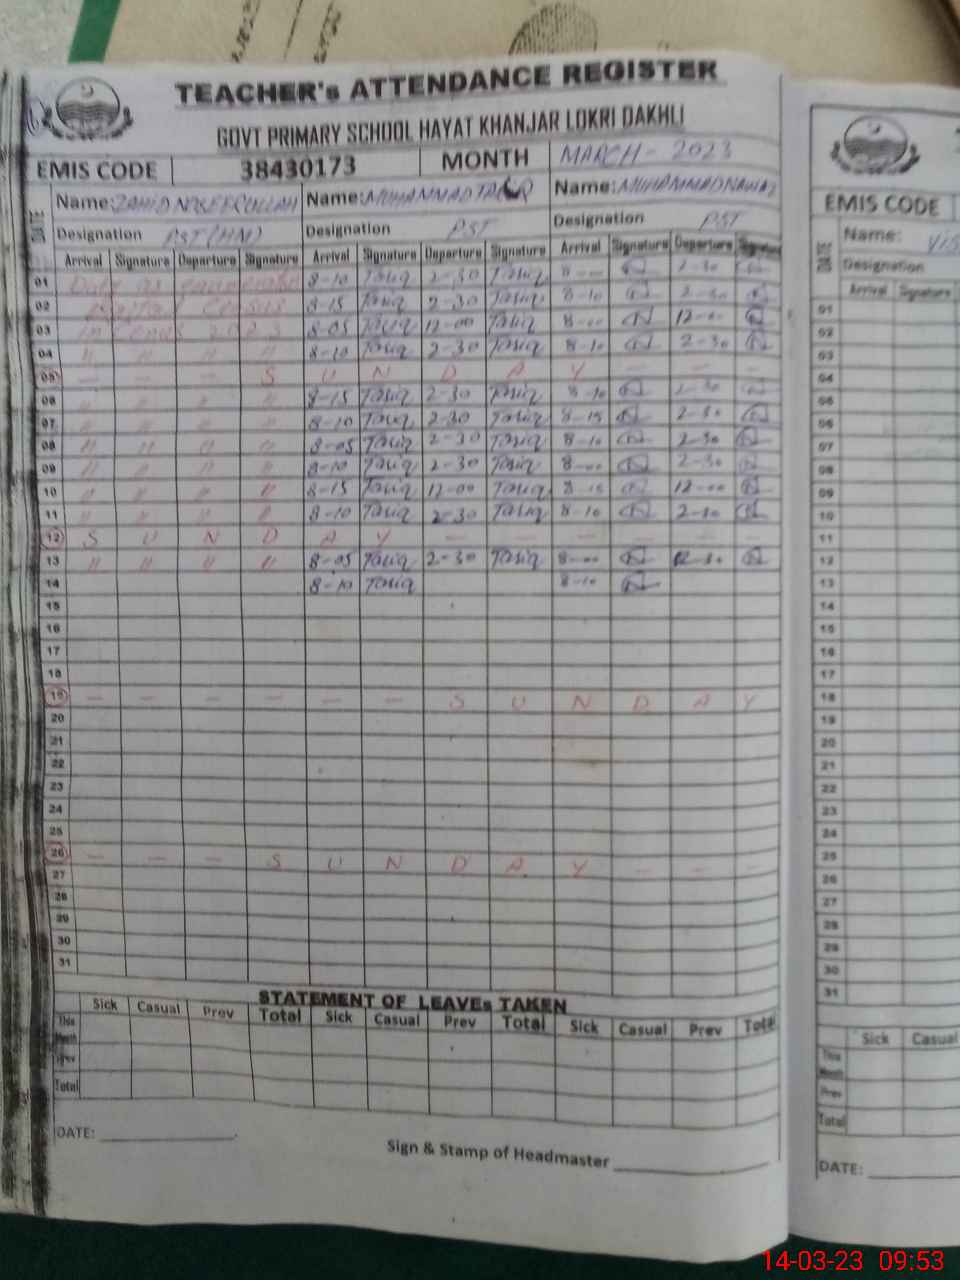 TEACHER's ATTENDANCE REGISTER
GOVT PRIMARY SCHOOL HAYAT KHANJAR LOKRI DAKHLI
EMIS CODE 38430173 MONTH MARCH - 2023
DATE Name: ZAHID NASEERULLAH Name: MUHAMMAD TARIQ Name: MUHAMMAD NAWAZ
Designation PST (HM) Designation PST Designation PST
Arrival Signature Departure Signature Arrival Signature Departure Signature Arrival Signature Departure Signature
01 Duty as enumerator 8-10 Tariq 2-30 Tariq 8-00 2-30
02 Digital Census 8-15 Tariq 2-30 Tariq 8-10 2-30
03 in Census 2023 8-05 Tariq 12-00 Tariq 8-00 12-00
04 " " " " 8-10 Tariq 2-30 Tariq 8-10 2-30
05 - - - S U N D A Y - - -
06 " " " " 8-15 Tariq 2-30 Tariq 8-10 2-30
07 " " " " 8-10 Tariq 2-30 Tariq 8-15 2-30
08 " " " " 8-05 Tariq 2-30 Tariq 8-10 2-30
09 " " " " 8-10 Tariq 2-30 Tariq 8-00 2-30
10 " " " " 8-15 Tariq 12-00 Tariq 8-15 12-00
11 " " " " 8-10 Tariq 2-30 Tariq 8-10 2-30
12 S U N D A Y - - - - - -
13 " " " " 8-05 Tariq 2-30 Tariq 8-00 2-30
14 8-10 Tariq 8-10
15
16
17
18
19 - - - - - - S U N D A Y
20
21
22
23
24
25
26 - - - S U N D A Y - - -
27
28
29
30
31
STATEMENT OF LEAVEs TAKEN
Sick Casual Prev Total Sick Casual Prev Total Sick Casual Prev Total
This
Month
Prev
Total
DATE:
Sign & Stamp of Headmaster
EMIS CODE
Name:
DATE Designation
Arrival Signature
01
02
03
04
05
06
07
08
09
10
11
12
13
14
15
16
17
18
19
20
21
22
23
24
25
26
27
28
29
30
31
Sick Casual
This
Month
Prev
Total
DATE:
14-03-23 09:53